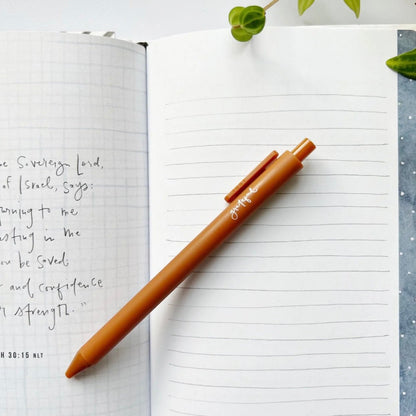 Sovereign Lord,
of Israel, says:
to me
in me
be saved
and confidence
strength."
30:15 NLT
grateful